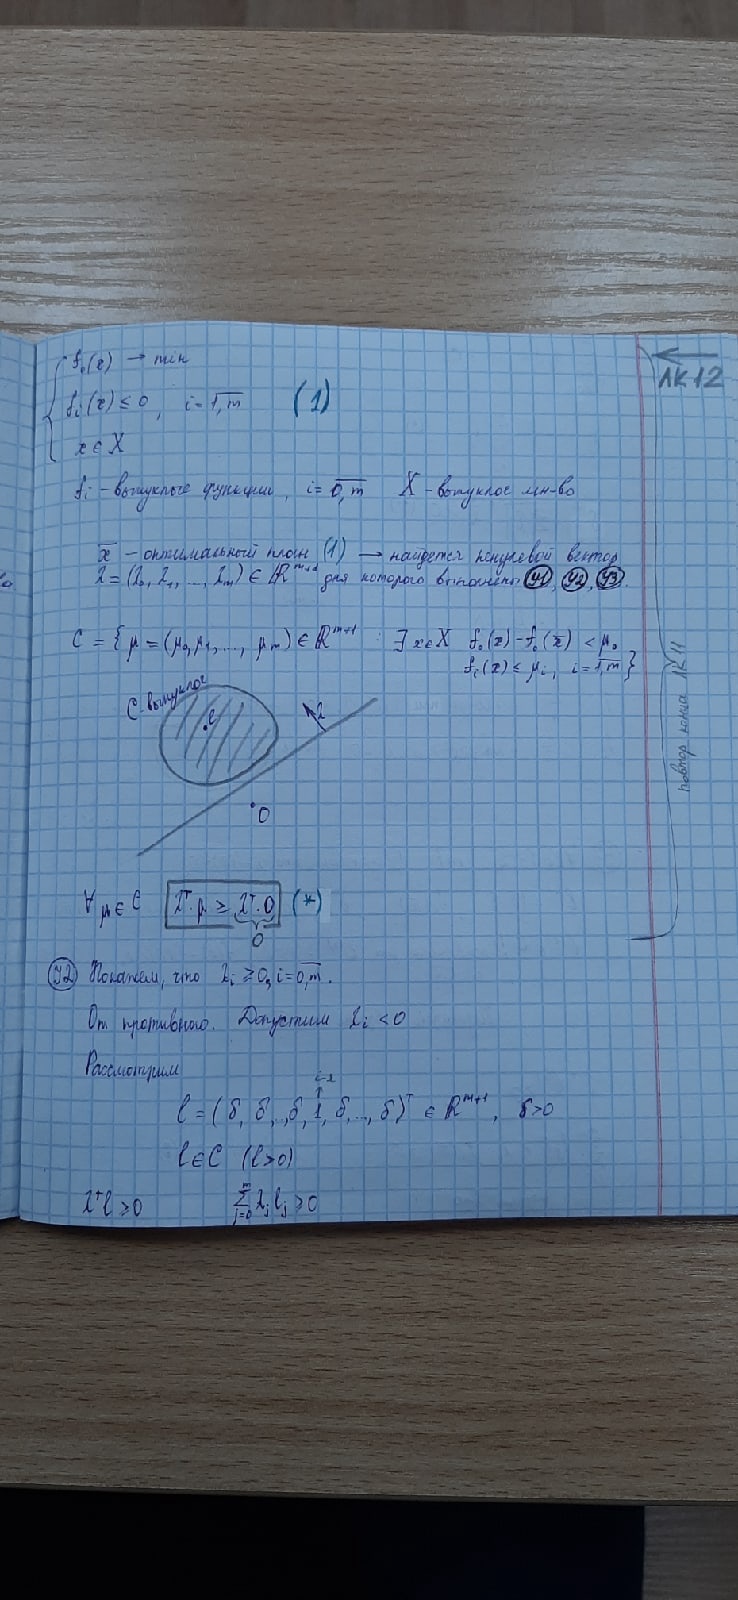 f₀(x) → min
fᵢ(x) ≤ 0, i = 1,m (1)
x ∈ X
fᵢ - выпуклые функции, i = 0,m X - выпуклое мн-во
x̄ - оптимальный план (1) → найдется ненулевой вектор
λ = (λ₀, λ₁, ..., λₘ) ∈ ℝᵐ⁺¹ для которого выполнены У1, У2, У3.
C = { μ = (μ₀, μ₁, ..., μₘ) ∈ ℝᵐ⁺¹ : ∃ x ∈ X f₀(x) - f₀(x̄) < μ₀
fᵢ(x) ≤ μᵢ, i = 1,m }
C - выпуклое
l
λ
0
∀ μ ∈ C λᵀ·μ ≥ λᵀ·0 (*)
0
У2 Покажем, что λᵢ ≥ 0, i = 0,m.
От противного. Допустим λᵢ < 0
Рассмотрим
l = (δ, δ, .., δ, 1, δ, .., δ)ᵀ ∈ ℝᵐ⁺¹, δ > 0
l ∈ C (l > 0)
λᵀl ≥ 0 ∑ⱼ₌₀ᵐ λⱼ lⱼ ≥ 0
← ЛК12
повтор конца ЛК11